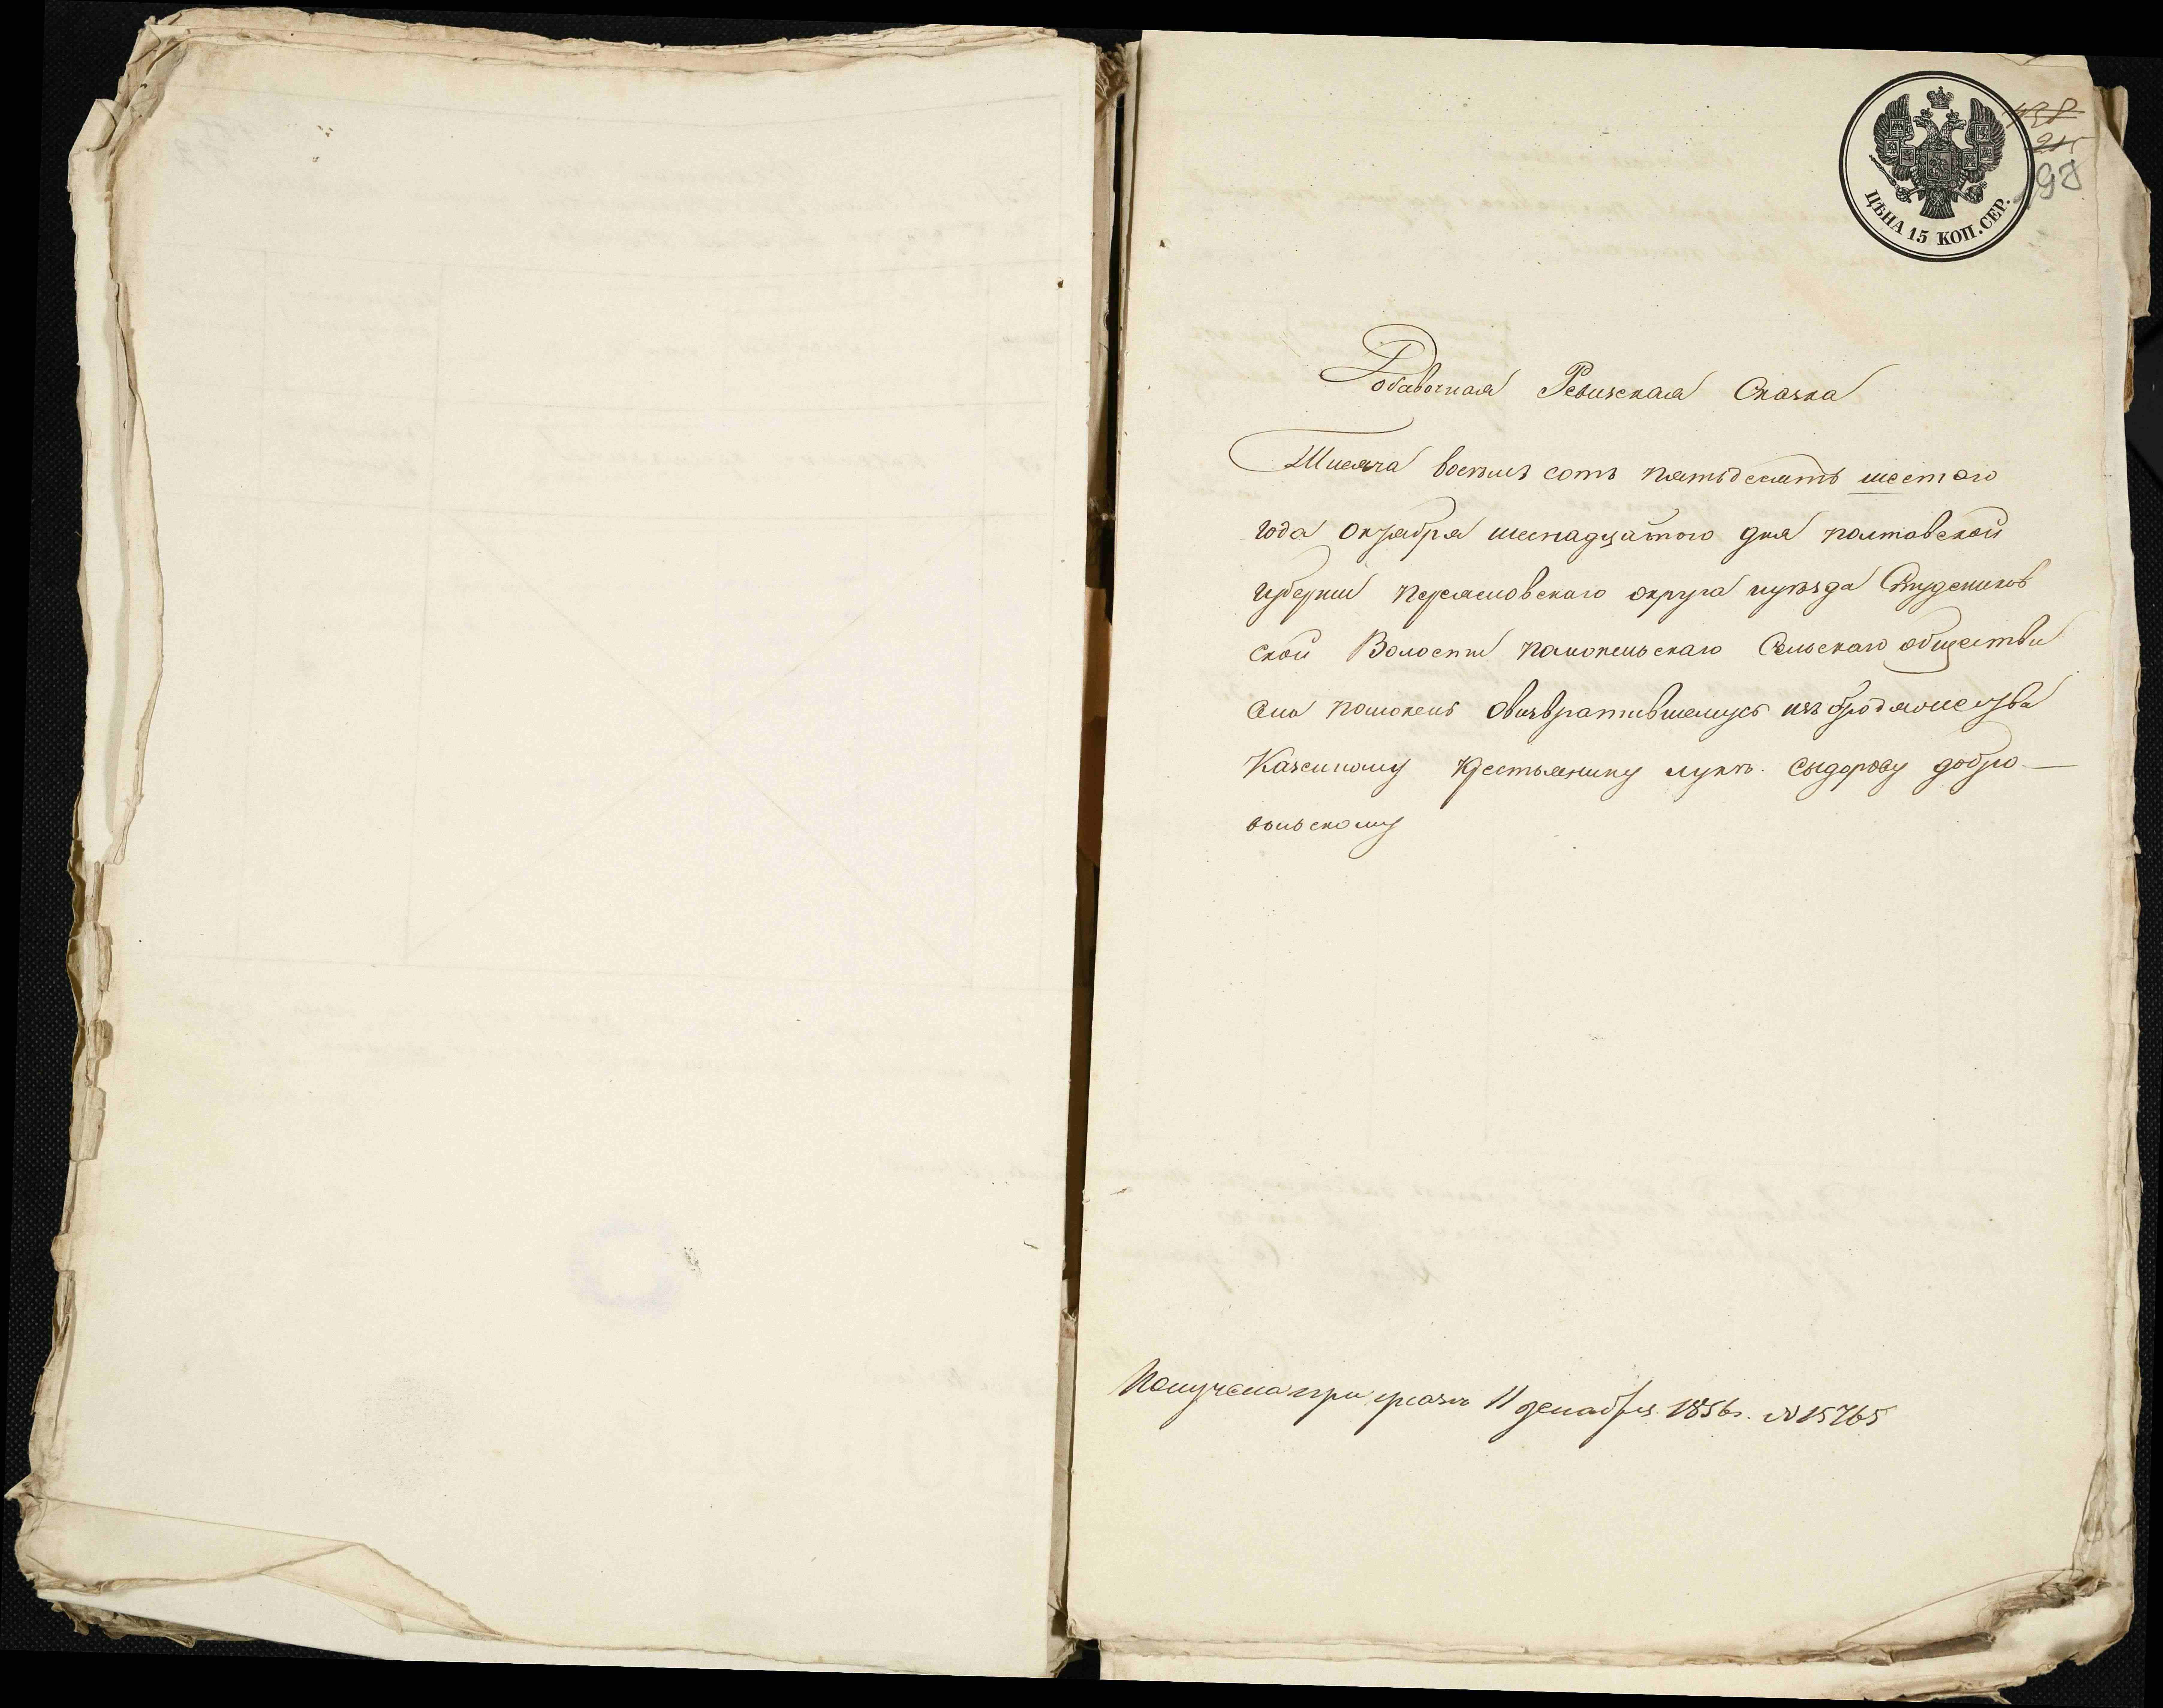 438
98
ЦѢНА 15 КОП. СЕР.
Добавочная Ревизская Сказка
Тисяча восемъ сотъ пятьдесятъ шестого
года октября шеснадцатого дня полтавской
губернии Переясловскаго округа иуѣзда Студеников
ской Волости Помокельскаго Сельскаго общества
Села помокель овозвратившемусь изъ бродяжества
Казенному крестьянину лукѣ Сыдорову добро—
вольскому
Получена при указѣ 11 декабря 1856 г. № 15765